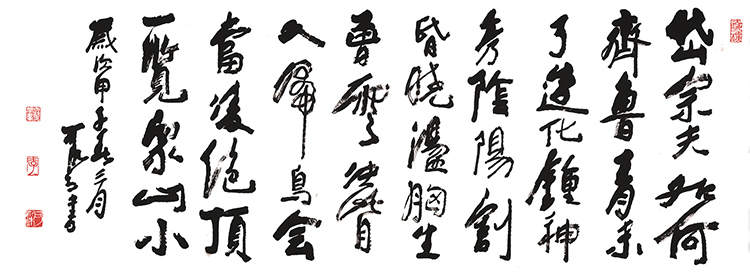 岱宗夫如何
齊魯青未
了造化鍾神
秀陰陽割
昏曉盪胸生
曾雲決眥
入歸鳥会
當凌絕頂
一覽眾山小
歲次甲子三月